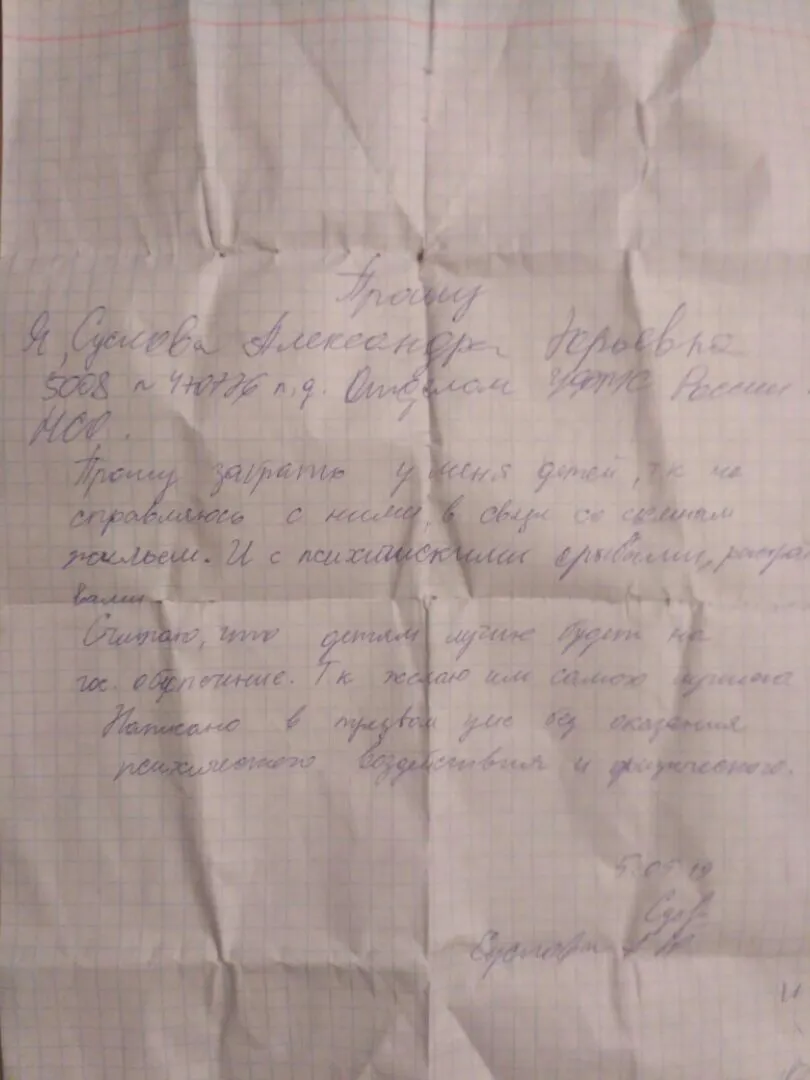 Прошу
Я, Суслова Александра Юрьевна
5008 n 470776 п.д. Отделом УФМС России
НСО.
Прошу забрать у меня детей, т.к не
справляюсь с ними, в связи со съемным
жильем. И с психическими срывами,
Считаю, что детям лучше будет на
гос. обеспечение. Т к желаю им самого лучшего
Написано в трезвом уме без оказания
психического воздействия и физического.
Суслова А Ю